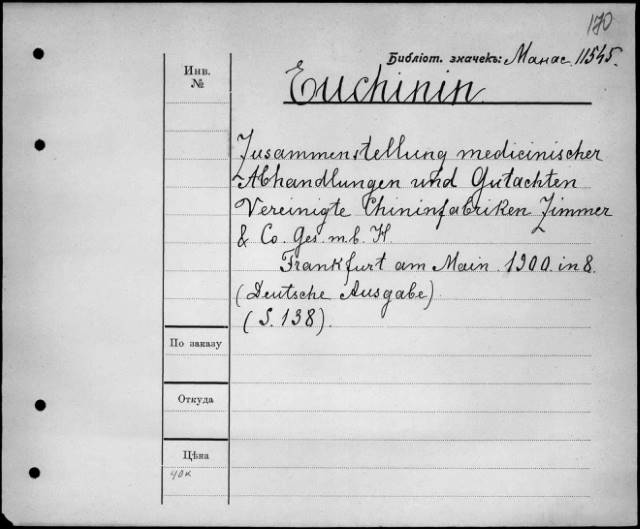 170
Библіот. значекъ: Манас. 11545.
Инв.
№
Euchinin
Zusammenstellung medicinischer
Abhandlungen und Gutachten
Vereinigte Chininfabriken Zimmer
& Co. Ges. m. b. H.
Frankfurt am Main. 1900. in 8.
(Deutsche Ausgabe)
(S. 138).
По заказу
Откуда
Цѣна
40к